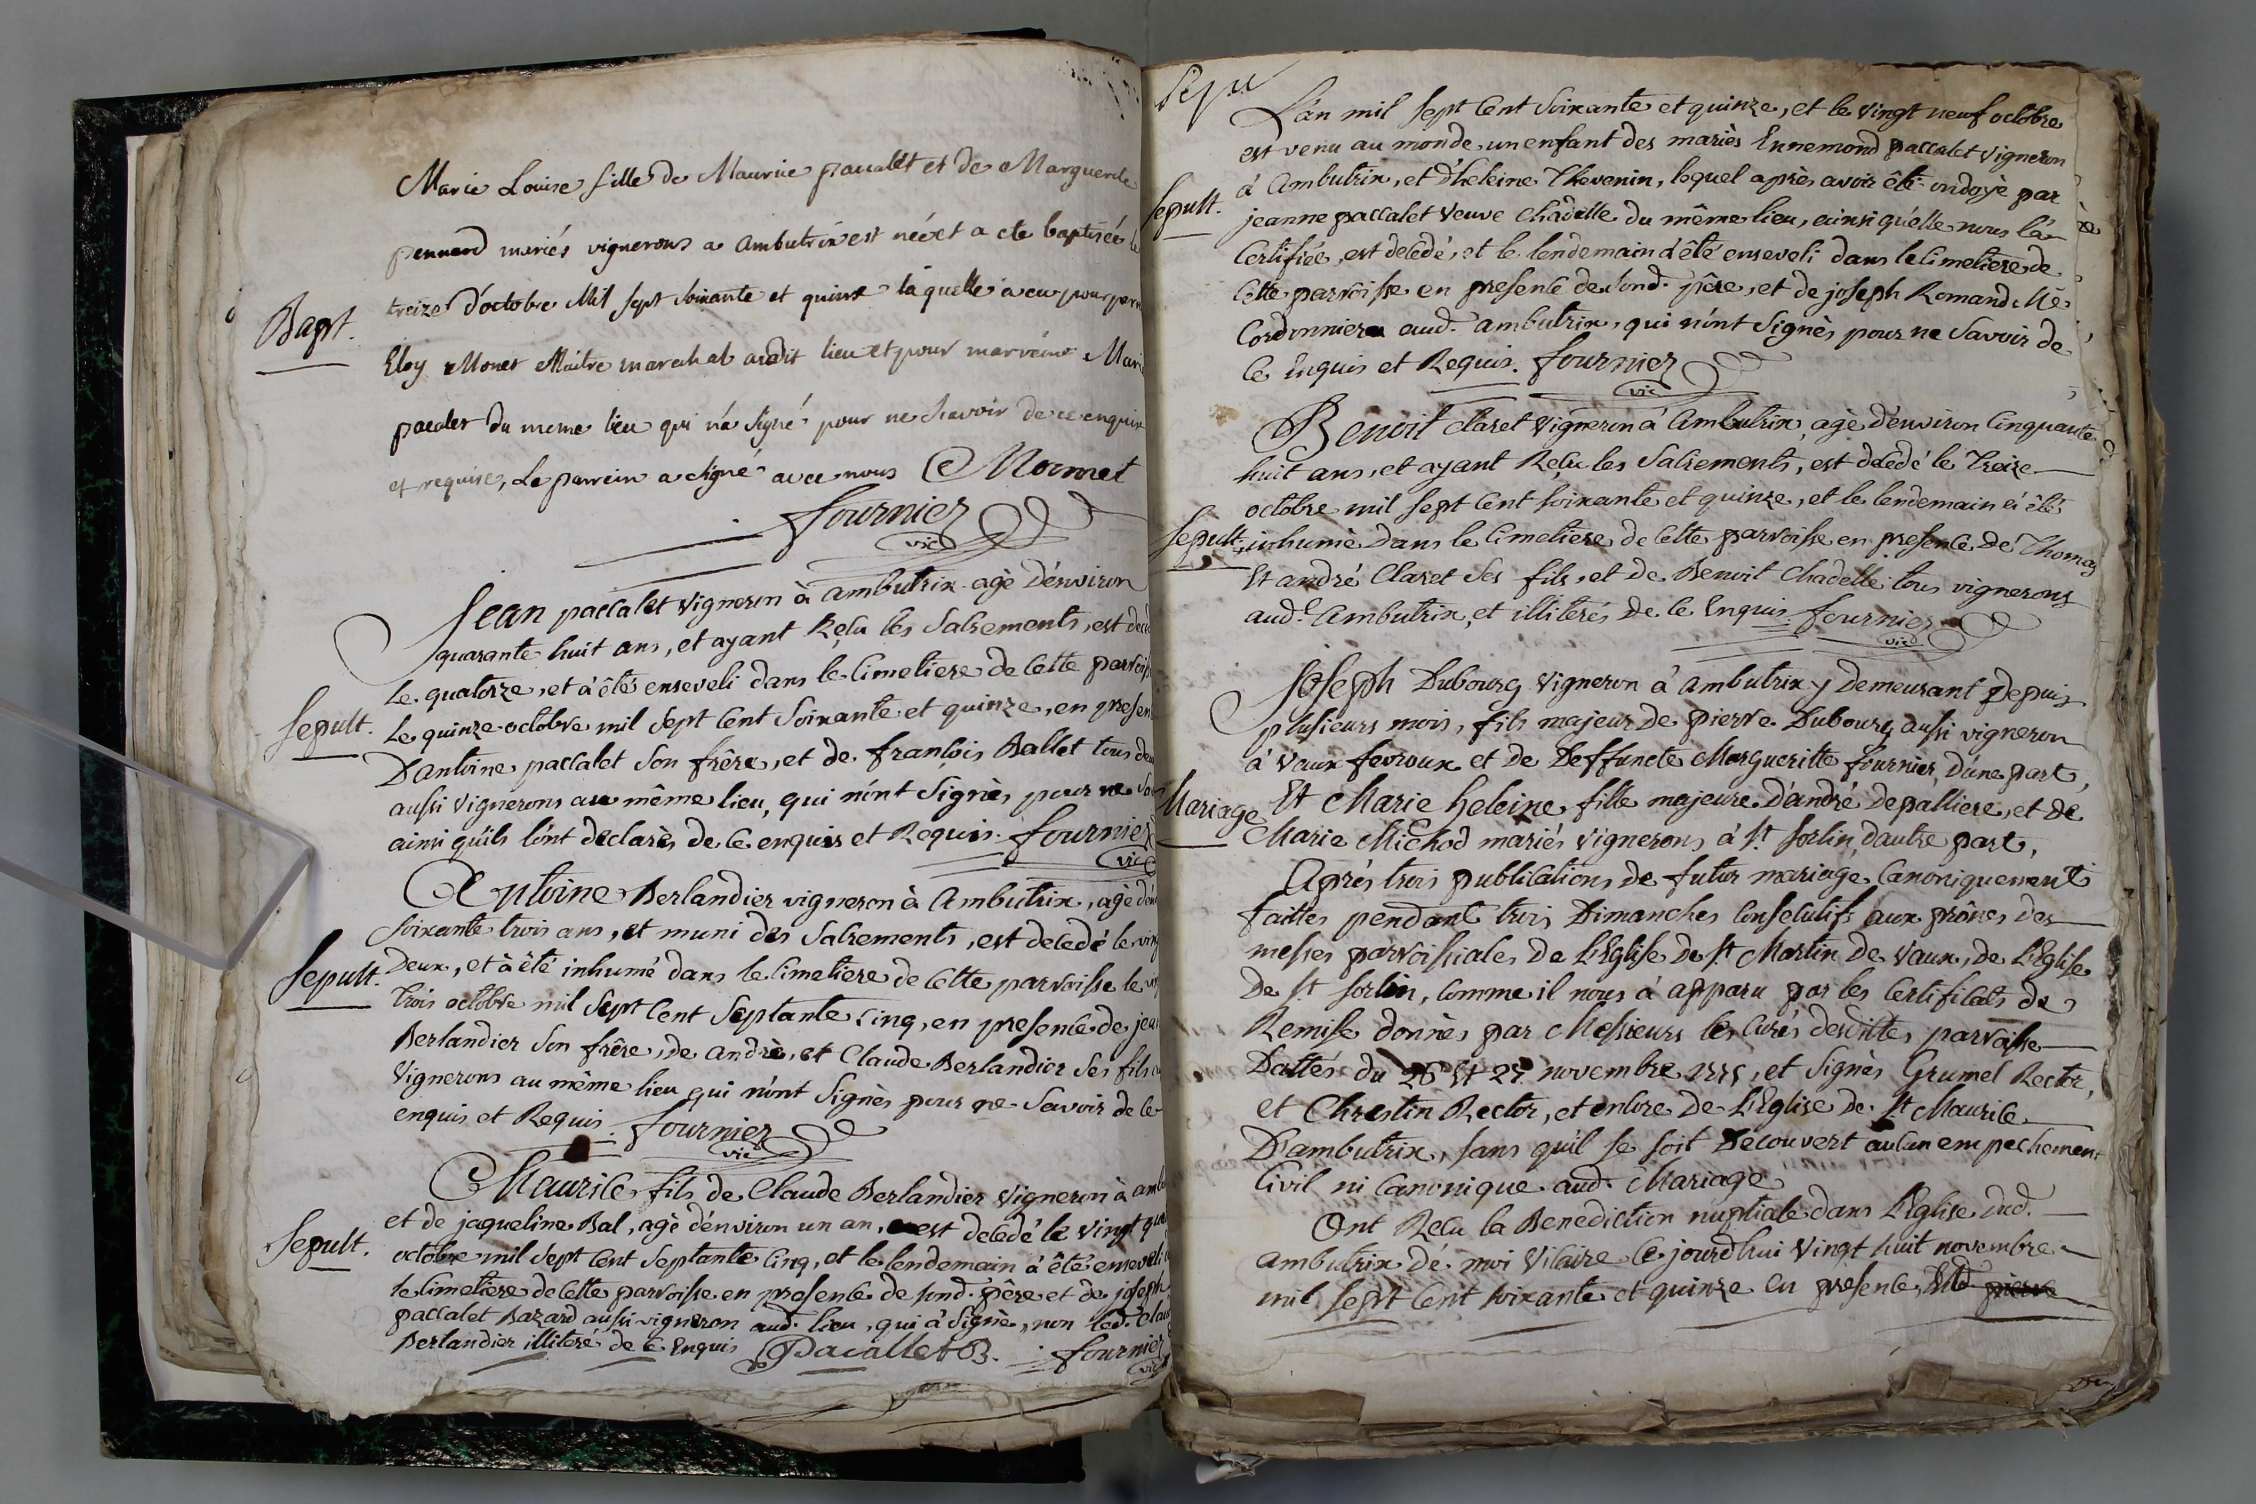 Marie Louise fille de Maurice paccalet et de Marguerite
pennard mariés vignerons a ambutrix est néé et a ete baptiséé le
Bapt.
treize d'octobre Mil sept soixante et quinze laquelle a eu pour
Eloy Monet Maitre marechal audit lieu et pour marreine Marie
pacalet du meme lieu qui n'á signé pour ne scavoir de ce enquise
et requise, Le parrein a signé avec nous E Mornet
fournier
vic
Jean paccalet vigneron à ambutrix agè d'énviron
quarante huit ans, et ayant Reçu les Sacrements, est
le quatorze, et à êté enseveli dans le cimetiere de cette
Sepult.
le quinze octobre mil sept cent soixante et quinze, en
D'antoine paccalet son frêre, et de françois Ballet tous
aussi vignerons au même lieu, qui n'ónt signès pour ne
ainsi qu'ils l'ónt declarès de ce enquis et Requis. fournier
vic
Antoine Berlandier vigneron à ambutrix, agè
soixante trois ans, et muni des Sacrements, est decedé le
Sepult.
Deux, et à êté inhumé dans le cimetiere de cette parroisse le
trois octobre mil sept cent septante cinq, en presence de jean
Berlandier son frêre, de andrè, et Claude Berlandier ses fils
vignerons au même lieu qui n'ónt signès pour ne savoir de ce
enquis et Requis. fournier
vic
Maurice fils de Claude Berlandier vigneron à
et de jaqueline Bal, agè d'énviron un an, est decedé le vingt
Sepult.
octobre mil sept cent septante cinq, et le lendemain à êté enseveli
le cimetiere de cette parroisse en presence de sond. pêre et de joseph
paccalet Bazard aussi vigneron aud. lieu, qui à signè, non led. Claude
Berlandier illiteré de ce enquis Pacallet B. fournier
vic
Sepu
L'an mil sept cent soixante et quinze, et le vingt neuf octobre
est venu au monde un enfant des mariès Ennemond paccalet vigneron
à ambutrix, et d'héleine Thevenin, lequel après avoir êté ondoyè par
Sepult.
jeanne paccalet veuve chadelle du même lieu, ainsi qu'elle nous l'á
certifiée, est decedé, et le lendemain à êté enseveli dans le cimetiere de
cette parroisse en presence de sond. pêre, et de joseph Romand Me
cordonnier aud. ambutrix, qui n'ónt signès pour ne savoir de
ce enquis et Requis. fournier
vic
Benoit Claret vigneron à Ambutrix, agè d'environ cinquante
huit ans, et ayant Reçu les Sacrements, est decedé le treize
octobre mil sept cent soixante et quinze, et le lendemain à êté
Sepult.
inhumè dans le cimetiere de cette parroisse en presence de Thomas
et andré Claret ses fils, et de Benoit chadelle tous vignerons
aud. ambutrix, et illiterés de ce enquis. fournier
vic
Joseph Dubourg vigneron à ambutrix y demeurant depuis
plusieurs mois, fils majeur de pierre Dubourg aussi vigneron
à vaux fevroux et de deffuncte Margueritte fournier, d'úne part,
Mariage
Et Marie heleine fille majeure d'andré depalliere, et de
Marie Michod mariés vignerons à St. sorlin, d'autre part,
Après trois publications de futur mariage canoniquement
faittes pendant trois Dimanches consecutifs aux prônes des
messes parroissiales de l'Eglise de St Martin de vaux, de l'Eglise
de St. sorlin, comme il nous à apparu par les certificats de
Remise donnès par Messieurs les curés desdittes parroisse
Dattés du 26 et 27. novembre 1775, et signès Grumel Rector,
et Chrestin Rector, et encore de l'Eglise de St Maurice
D'ambutrix, sans qu'il se soit decouvert aucun empechement
civil ni canonique aud. Mariage
Ont Reçu la Benediction nuptiale dans l'Eglise dud.
ambutrix de moi vicaire ce jourd'hui vingt huit novembre
mil sept cent soixante et quinze en presence dud pierre